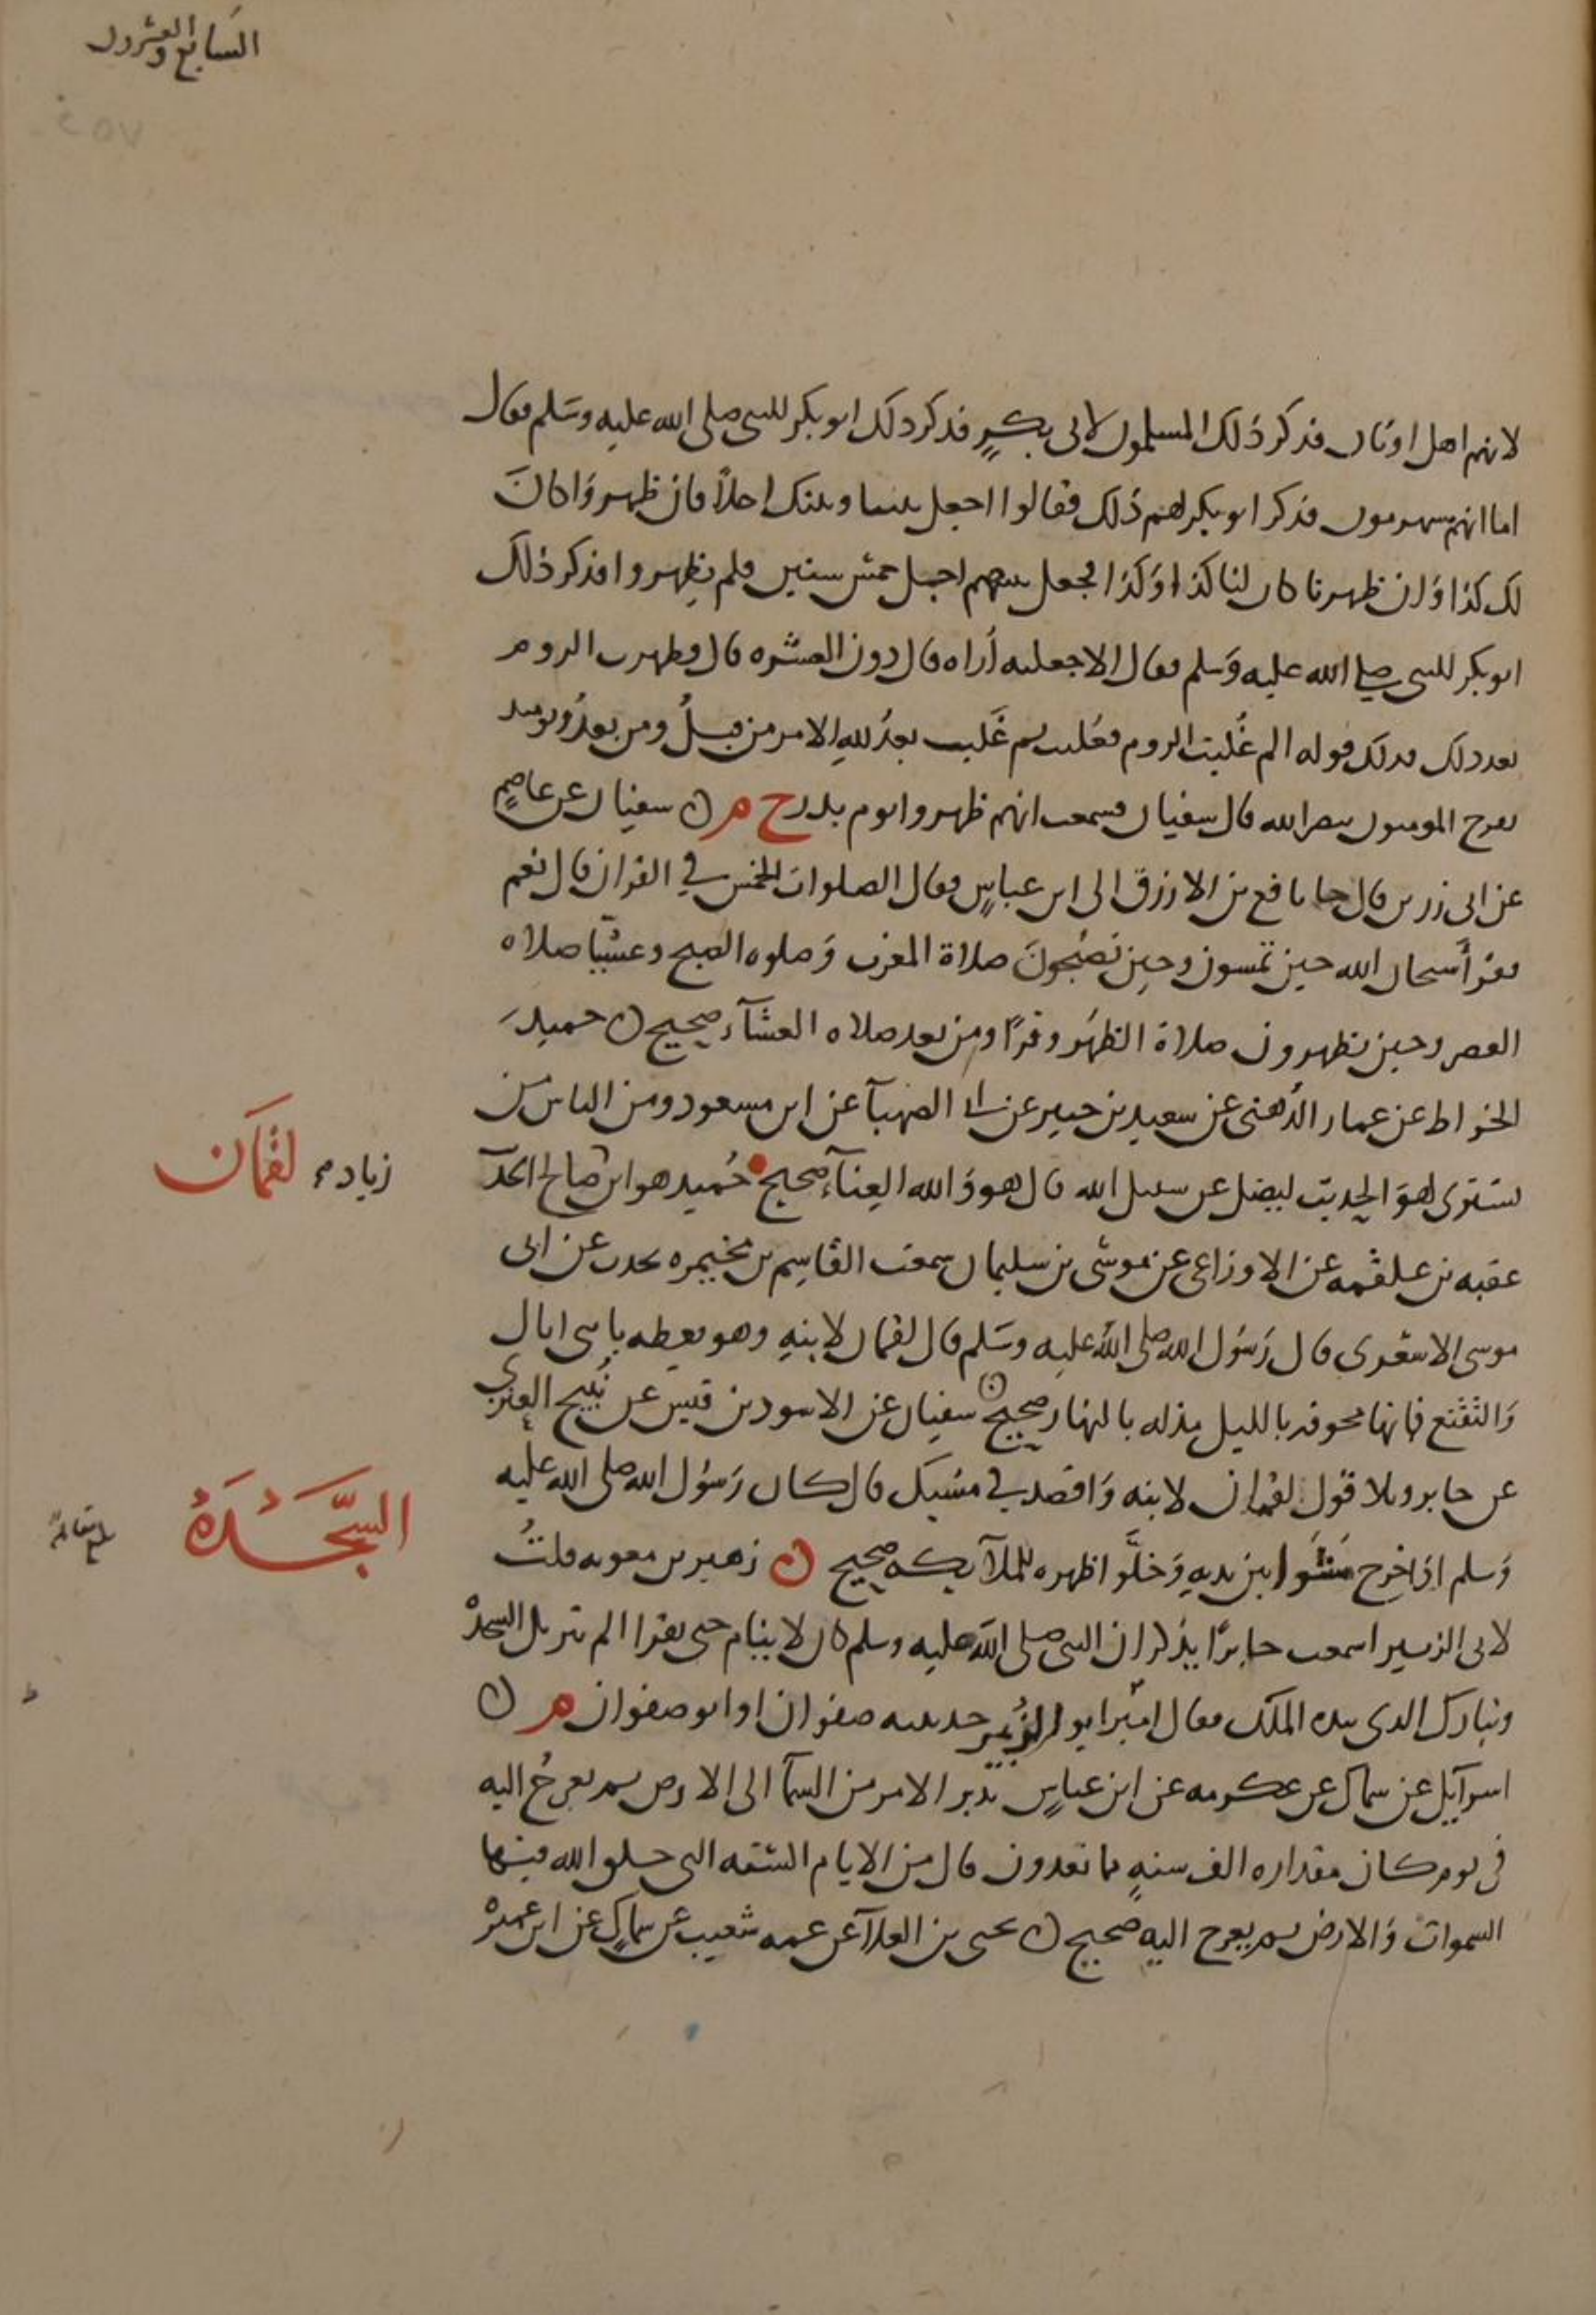 السابع والعشرون
٤٥٧
لانهم اهل اوثان فذكر ذلك المسلمون لابى بكرٍ فذكر ذلك ابو بكر للنبى صلى الله عليه وسلم فقال
اما انهم سيهزمون فذكر ابو بكر لهم ذلك فقالوا اجعل بيننا وبينك اجلاً فان ظهروا كان
لك كذا وان ظهرنا كان لنا كذا وكذا فجعل بينهم اجل خمس سنين فلم يظهروا فذكر ذلك
ابو بكر للنبى صلى الله عليه وسلم فقال الا جعلته أراه قال دون العشره قال فظهرت الروم
بعد ذلك فذلك قوله الم غُلبت الروم فغلبت ثم غَلبت بعدُ لله الامر من قبلُ ومن بعدُ ويومئذ
يفرح المومنون بنصر الله قال سفيان فسمعت انهم ظهروا يوم بدر خ م ن سفيان عن عاصمٍ
عن ابى رزين قال جا نافع بن الازرق الى ابن عباسٍ فقال الصلوات الخمس في القران قال نعم
فقرأ سبحان الله حين تمسون وحين تصبحون صلاة المغرب وصلوه الصبح وعشيّا صلاه
العصر وحين تظهرون صلاة الظهر وقرأ ومن بعد صلاه العشآء صحيح ن حميد
الخراط عن عمار الدُهنى عن سعيد بن جبير عن ابى الصهبآ عن ابن مسعود ومن الناس من
يشترى لهو الحديث ليضل عن سبيل الله قال هو والله الغِنآء صحيح حُميد هو ابن صالح الحدآ
زياده لقمان
عقبه بن علقمه عن الاوزاعى عن موسى بن سليمان سمعت القاسِم بن مخيمره يحدث عن ابى
موسى الاشعرى قال رسُول الله صلى الله عليه وسَلم قال لقمان لابنهِ وهو يعظه يا بنى اياك
والتقنع فانها مخوفه بالليل مذله بالنهار صحيح ن سفيان عن الاسود بن قيس عن نُبيح العنزى
عن جابر وتلا قول لقمان لابنه واقصد في مشيك قال كان رسُول الله صلى الله عليه
السَّجَدَةُ
وسلم اذا خرج مشَوا بين يديهِ وَخلَّوا ظهره للملآيكه صحيح ن زهير بن معويه قلتُ
لابى الزبير اسمعت جابرًا يذكر ان النبى صلى الله عليه وسلم كان لا ينام حتى يقرا الم تنزيل السجدة
وتبارك الذى بيده الملك فقال ابو الزُبير حدثنيه صفوان او ابو صفوان م ن
اسرآيل عن سماك عن عكرمه عن ابن عباسٍ يدبر الامر من السمآ الى الارض ثم يعرجُ اليه
فى يوم كان مقداره الف سنهٍ مما تعدون قال من الايام الستَه التى خلق الله فيها
السموات والارض ثم يعرج اليه صحيح ن يحيى بن العلآ عن عمه شعيب عن سماكٍ عن ابن عميرة